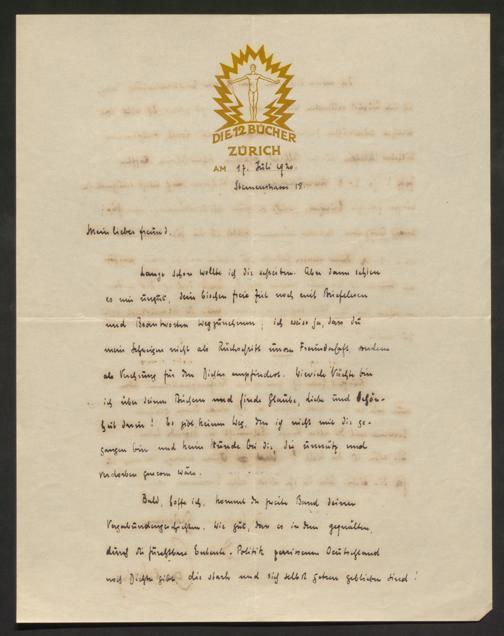 DIE 12 BÜCHER
ZÜRICH
AM 17. Juli 1920.
Sternenstrasse 18.
Mein lieber Freund.
Lange schon wollte ich dir schreiben. Aber dann schien
es mir ungut, dein bischen freie Zeit noch mit Brieflesen
und Beantworten wegzunehmen; ich weiss ja, dass du
mein Schweigen nicht als Rückschritt unserer Freundschaft sondern
als Verehrung für den Dichter empfindest. Wieviele Nächte bin
ich über deinen Büchern und finde Glaube, Liebe und Schön-
heit darin! Es gibt keinen Weg, den ich nicht mit dir ge-
gangen bin und keine Stunde bei dir, die unnütz und
verdorben gewesen wäre.
Bald, hoffe ich, kommt der zweite Band deiner
Vagabundengeschichten. Wie gut, dass es in dem gequälten,
durch die furchtbare Entente-Politik zerrissenen Deutschland
noch Dichter gibt, die stark und sich selbst getreu geblieben sind!